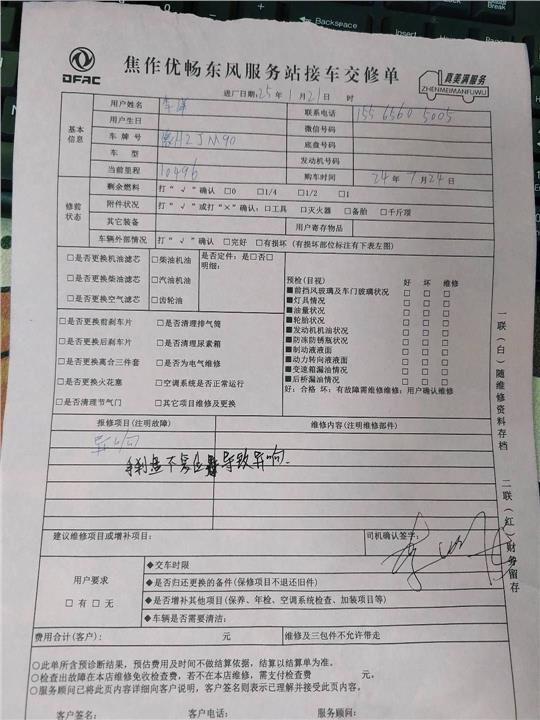 DFAC
焦作优畅东风服务站接车交修单
真美满服务
ZHENMEIMANFUWU
进厂日期:25年1月21日 时
基本信息
用户姓名 联系电话 155 6560 5005
用户生日 微信号码
车牌号 2JM90 底盘号码
车型 发动机号码
当前里程 10496 购车时间 24年7月24日
修前状态
剩余燃料 打“√”确认 □0 □1/4 □1/2 □1
附件状况 打“√”或打“×”确认:□工具 □灭火器 □备胎 □千斤顶
其它装备 用户寄存物品
车辆外部情况 打“√”确认 □完好 □有损坏(有损坏部位标注有下表左图)
□是否更换机油滤芯 □柴油机油 是否定件:是□否□
明细:
□是否更换柴油滤芯 □汽油机油
□是否更换空气滤芯 □齿轮油
预检(目视) 好 坏 维修
■前挡风玻璃及车门玻璃状况 □ □ □
■灯具情况 □ □ □
■油量状况 □ □ □
■轮胎状况 □ □ □
■发动机机油状况 □ □ □
■防冻防锈瓶状况 □ □ □
■制动液液面 □ □ □
■动力转向液液面 □ □ □
■变速箱漏油情况 □ □ □
■后桥漏油情况 □ □ □
好:合格 坏:有故障需维修维修:用户确认维修
□是否更换前刹车片 □是否清理排气筒
□是否更换后刹车片 □是否清理尿素箱
□是否更换离合三件套 □是否为电气维修
□是否更换火花塞 □空调系统是否正常运行
□是否清理节气门 □其它项目维修及更换
报修项目(注明故障) 维修内容(注明维修部件)
异响
导致异响.
建议维修项目或增补项目: 司机确认签字:
用户要求
□有□无
◆交车时限
◆是否归还更换的备件(保修项目不退还旧件)
◆是否增补其他项目(保养、年检、空调系统检查、加装项目等)
◆车辆是否需要清洁:
费用合计(客户): 元 维修及三包件不允许带走
○此单所含预诊断结果,预估费用及时间不做结算依据,结算以结算单为准。
○检查出故障在本店维修免收检查费,若不在本店维修,需支付检查费 元。
○服务顾问已将此页内容详细向客户说明,客户签名则表示已理解并接受此页内容。
客户签名: 客户电话: 服务顾问:
一联(白)随维修资料存档
二联(红)财务留存